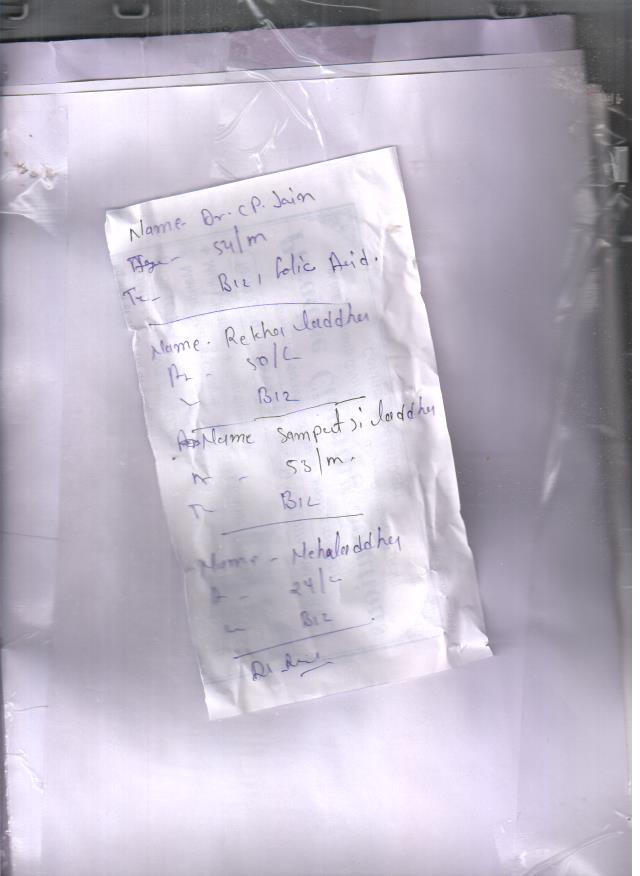 Name- Dr. C P. Jain
Age- 54/m
Te- B12, Folic Acid.
Name. Rekha Laddha
50/F
B12
Name Sampat ji Laddha
53/m.
B12
Name - Neha Laddha
24/F
B12